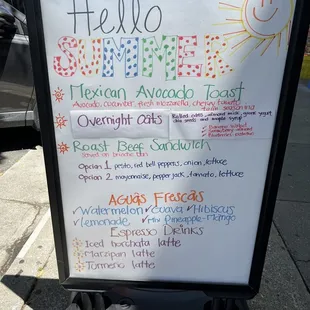 Hello
SUMMER
Mexican Avocado Toast
Avocado, cucumber, fresh mozzarella, cherry tomato,
Overnight Oats
Rolled oats, almond milk, greek yogurt
chia seeds and maple syrup
Roast Beef Sandwich
served on
Option 1 pesto, red bell peppers, onion, lettuce
Option 2 mayonnaise, pepper jack, tomato, lettuce
AGUAS FRESCAS
Watermelon ✓Guava ✓Hibiscus
Lemonade ✓Mix Pineapple-Mango
Espresso Drinks
Iced horchata latte
Mazapan latte
Turmeric latte